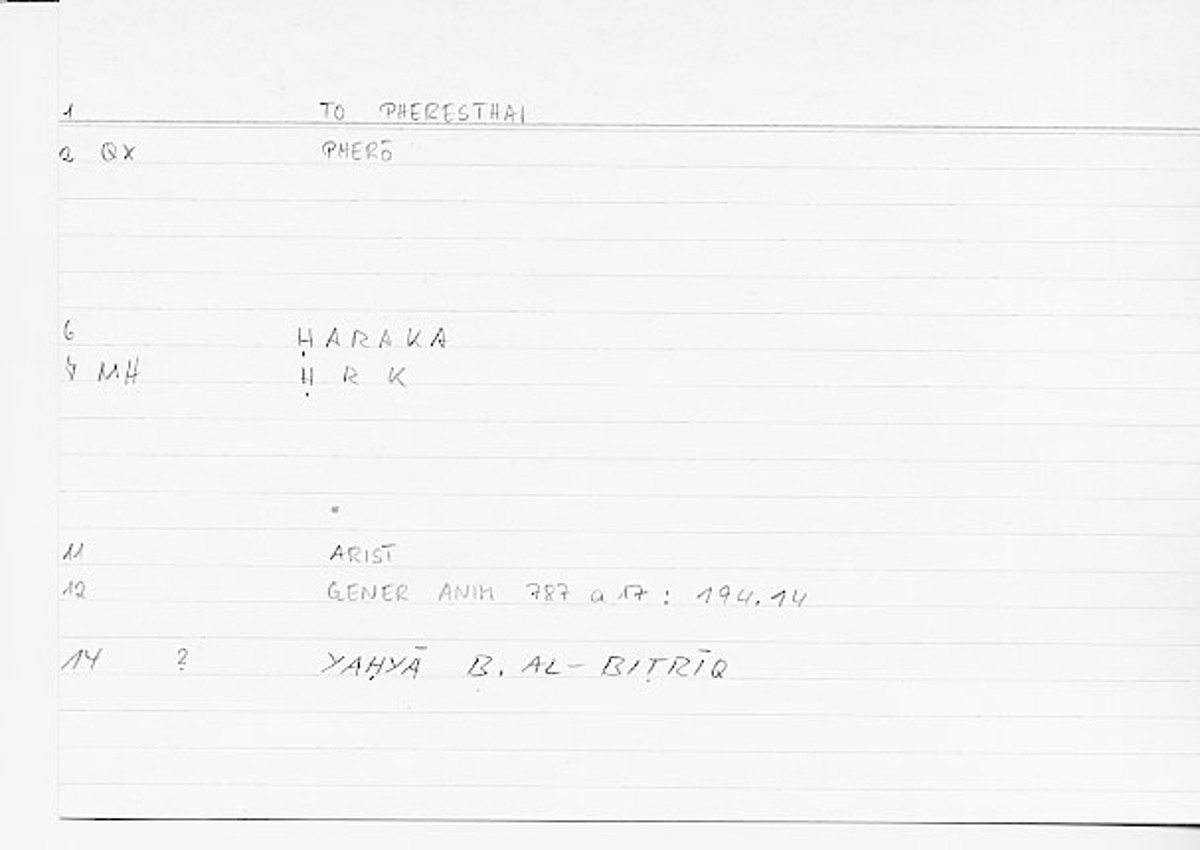 1 TO PHERESTHAI
2 QX PHERŌ
6 ḤARAKA
7 MH Ḥ R K
11 ARIST
12 GENER ANIM 787 a 17 : 194.14
14 ? YAḤYĀ B. AL-BIṬRĪQ